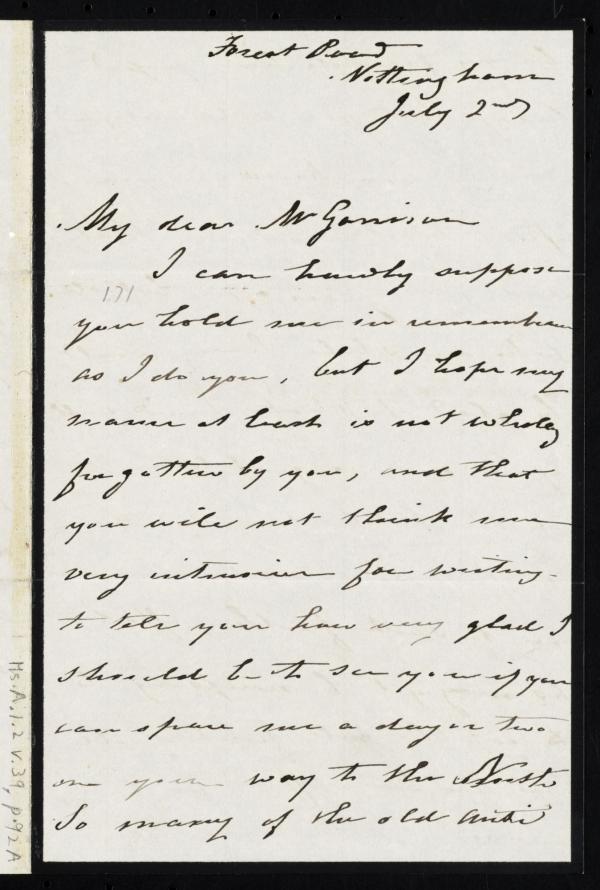 Forest Road
Nottingham
July 2nd
My dear Mr Garrison
I can hardly suppose
171
you hold me in remembrance
as I do you, but I hope my
name at least is not wholly
forgotten by you, and that
you will not think me
very intrusive for writing
to tell you how very glad I
should be to see you if you
can spare me a day or two
on your way to the North
So many of the old Anti
Ms. A. 1. 2 v. 39, p. 92A